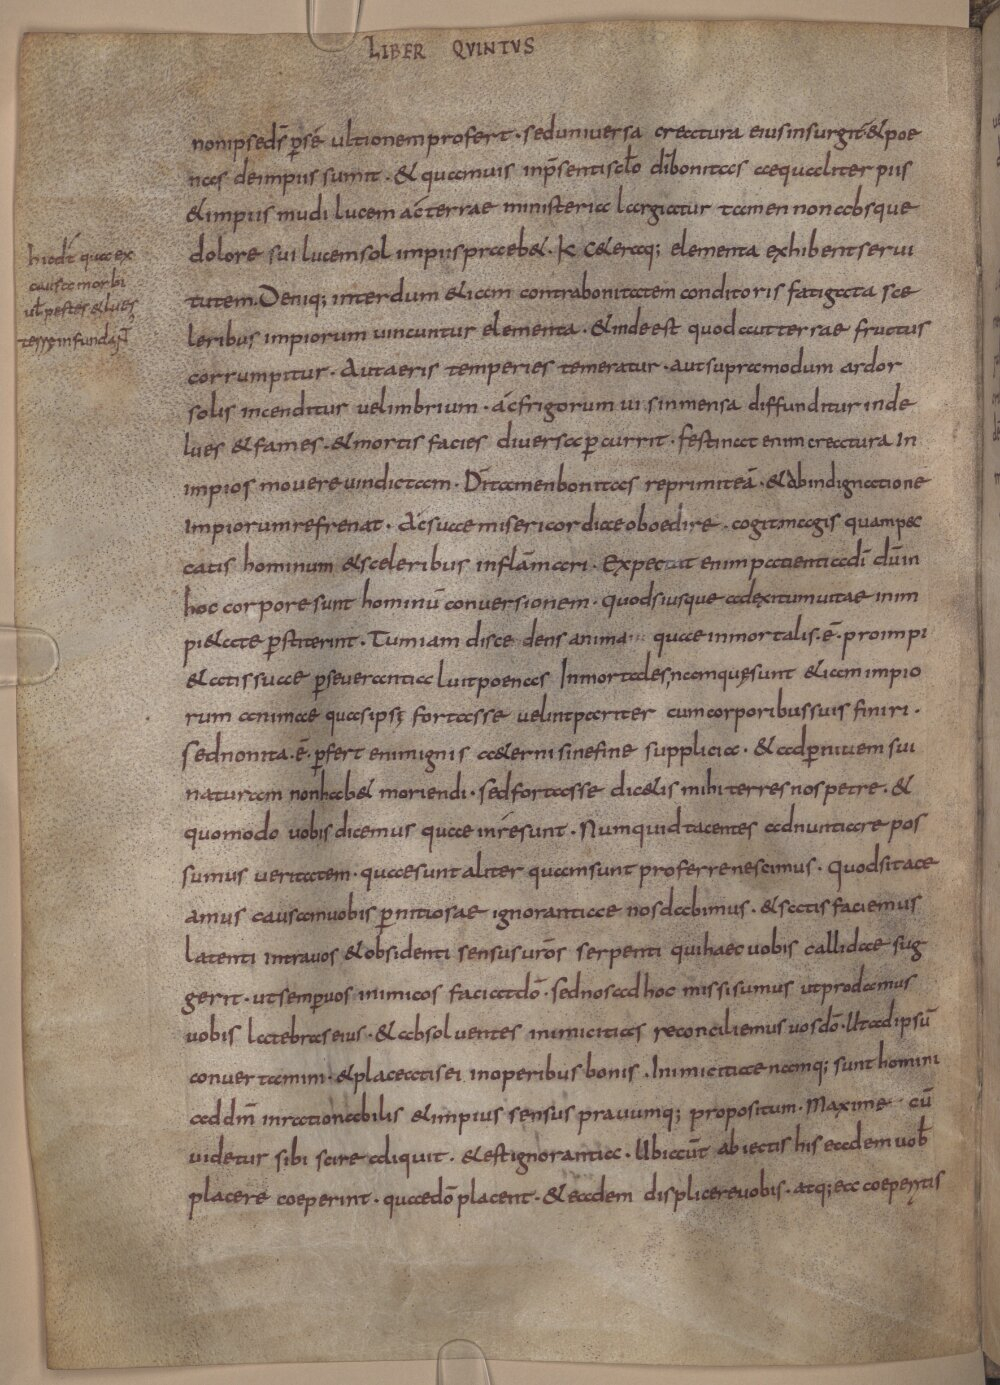 LIBER QVINTVS
non ipse ds̄ p̄ sē ultionem profert · sed uniuersa creatura eius insurgit · & poe
nas de impiis sumit · & quamuis in p̄senti scl̄o dī bonitas aequaliter piis
& impiis mudi lucem ac̄ terrae ministeria largiatur tamen non absque
dolore sui lucem sol impiis praeb& · & c&eraq; elementa exhibent serui
tutem. Deniq; interdum &iam contra bonitatem conditoris fatigata sce
leribus impiorum uincuntur elementa · & inde est quod aut terrae fructus
corrumpitur · Aut aeris temperies temeratur · aut supra modum ardor
solis incenditur uel imbrium · ac̄ frigorum uis inmensa diffunditur inde
lues & fames · & mortis facies diuersa p̄currit · festinat enim creatura in
impios mouere uindictam · Dī tamen bonitas reprimit eā · & ab indignatione
impiorum refrenat · Ac suae misericordiae oboedire · cogit magis quam pec
catis hominum & sceleribus inflāmari · Expectat enim patientia dī dū in
hoc corpore sunt hominū conuersionem · quod si usque ad exitum uitae in im
pi&ate p̄stiterint · Tum iam disce dens anima quae inmortalis · ē · pro impi
&atis suae p̄seuerantia luit poenas Inmortales, namquę sunt &iam impio
rum animae quas ipsę fortasse uelint pariter cum corporibus suis finiri ·
sed non ita · ē · p̄fert enim ignis a&erni sine fine supplicia · & ad p̄nitiem sui
naturam non hab& moriendi · sed fortasse dic&is mihi terres nos petre · &
quomodo uobis dicemus quae in re sunt · Numquid tacentes adnuntiare pos
sumus ueritatem · quae sunt aliter quam sunt proferre nescimus · Quod si tace
amus causam uobis p̄nitiosae ignorantiae nos dabimus · & satis faciemus
latenti intra uos & obsidenti sensus urōs serpenti qui haec uobis callidae sug
gerit · ut semp̄ uos inimicos faciat dō · sed nos ad hoc missi sumus ut prodamus
uobis latebras eius · & absoluentes inimicitias reconciliemus uos dō · Ut ad ipsū
conuertamini · & placeatis ei in operibus bonis · Inimicitiae namq; sunt homini
ad dm̄ inrationabilis & impius sensus prauumq; propositum · Maxime cū
uidetur sibi scire aliquit · & est ignorantia · Ubi aūt abiectis his eadem uob̄
placere coeperint · quae dō placent · & eadem displicere uobis · atq; ea coeperitis
hic dt̄ quae ex
causa morbi
ut̄ pestes & lues
terrę infundaƞt̄